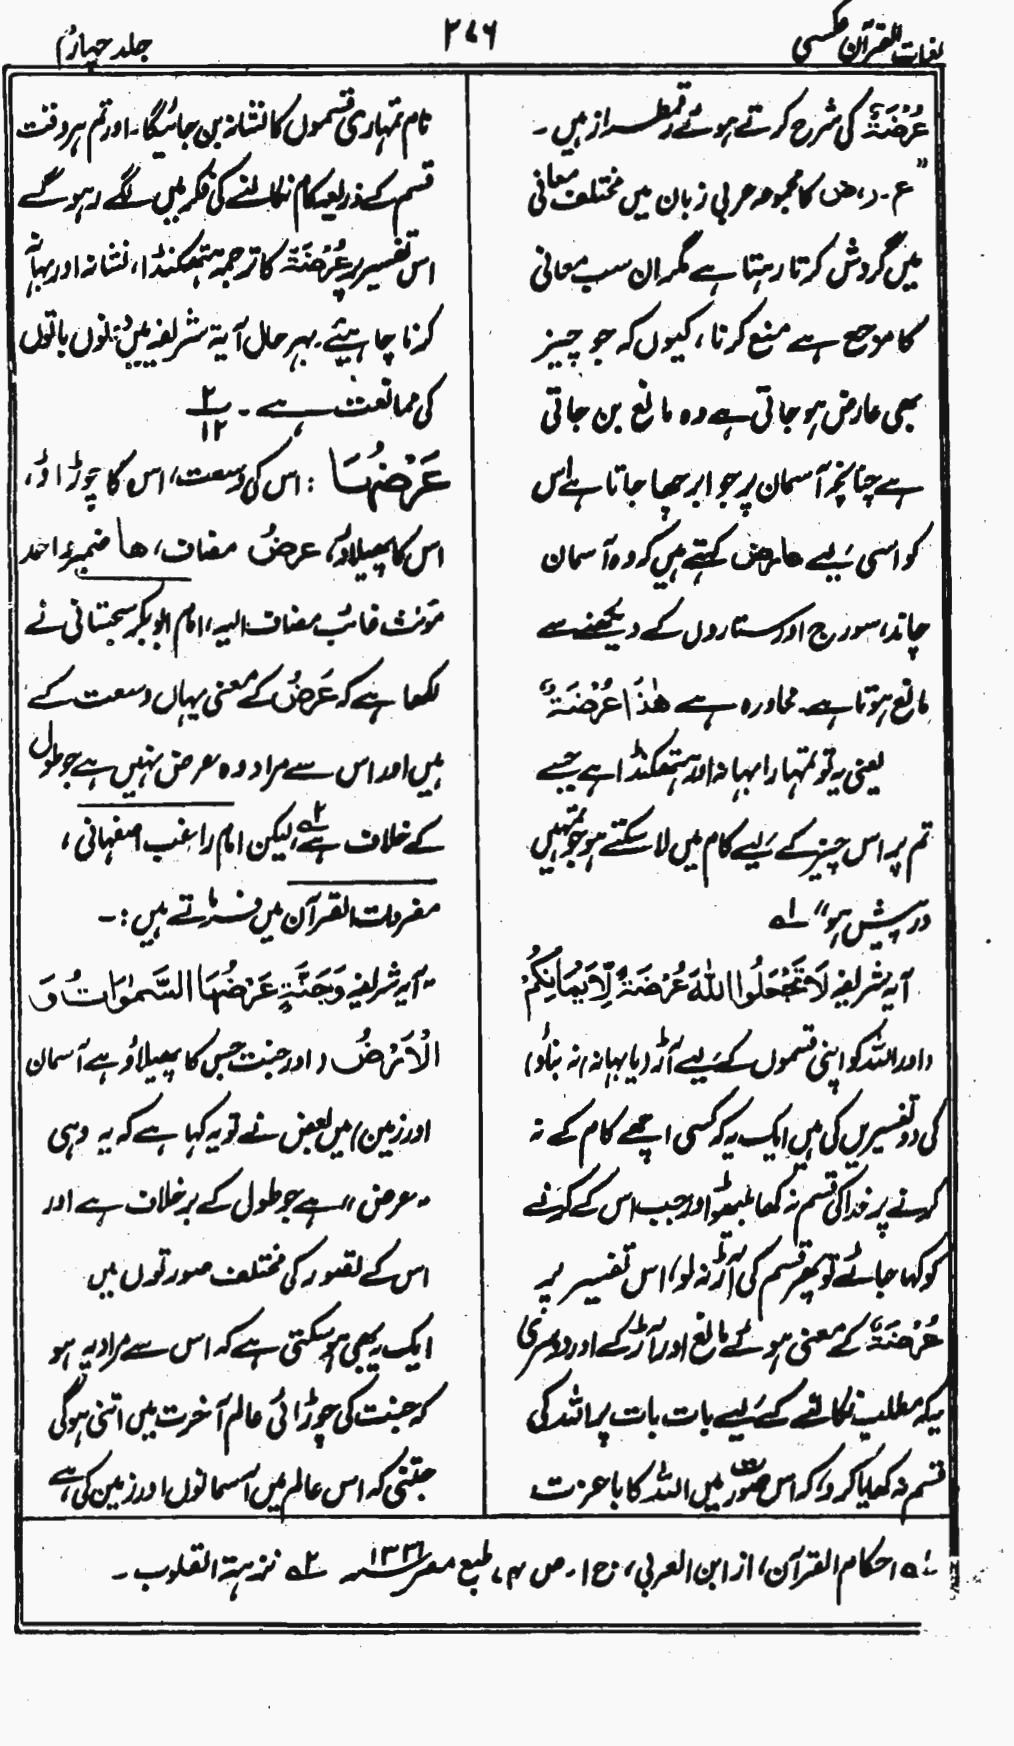 لغات القرآن عکسی
۲۷۶
جلد چہارم
عُرْضَةً کی شرح کرتے ہوئے رقمطراز ہیں ۔
"ع ۔ ر، ض کا مجموعہ عربی زبان میں مختلف معانی
میں گردش کرتا رہتا ہے مگر ان سب معانی
کا مرجع ہے منع کرنا، کیوں کہ جو چیز
بھی عارض ہو جاتی ہے وہ مانع بن جاتی
ہے چنانچہ آسمان پر جو ابر چھا جاتا ہے اس
کو اسی لیے عارض کہتے ہیں کہ وہ آسمان
چاند، سورج اور ستاروں کے دیکھنے سے
مانع ہوتا ہے۔ محاورہ ہے هٰذَا عُرْضَةٌ
یعنی یہ تو تمہارا بہانہ اور ہتھکنڈا ہے جسے
تم پر اس چیز کے لیے کام میں لا سکتے ہو جو تمہیں
درپیش ہو" لہ۱
آیہ شریفہ لَا تَجْعَلُوا اللّٰهَ عُرْضَةً لِّاَيْمَانِكُمْ
(اور اللہ کو اپنی قسموں کے لیے آڑ (یا بہانہ) نہ بناؤ)
کی دو تفسیریں کی ہیں ایک یہ کہ کسی اچھے کام کے نہ
کرنے پر خدا کی قسم نہ کھا بیٹھو اور جب اس کے کرنے
کو کہا جائے تو پھر قسم کی آڑ نہ لو، اس تفسیر پر
عُرْضَةً کے معنی ہوئے مانع اور آڑ کے اور دوسری
یہ کہ مطلب نکالنے کے لیے بات بات پر اللہ کی
قسم نہ کھایا کرو کہ اس صورت میں اللہ کا باعزت
نام تمہاری قسموں کا نشانہ بن جائیگا۔ اور تم ہر وقت
قسم کے ذریعہ کام نکالنے کی فکر میں لگے رہو گے
اس تفسیر پر عُرْضَةً کا ترجمہ ہتھکنڈا، نشانہ اور بہانہ
کرنا چاہیئے۔ بہرحال آیۃ شریفہ میں دونوں باتوں
کی ممانعت ہے ۔ ۲/۱۲
عَرْضُهَا : اس کی وسعت، اس کا چوڑاؤ،
اس کا پھیلاؤ، عرضُ مضاف، ها ضمیر واحد
مؤنث غائب مضاف الیہ، امام ابوبکر سجستانی نے
لکھا ہے کہ عَرْضُ کے معنی یہاں وسعت کے
ہیں اور اس سے مراد وہ عرض نہیں ہے جو طول
کے خلاف ہے لہ۲ لیکن امام راغب اصفہانی،
مفردات القرآن میں فرماتے ہیں :۔
"آیہ شریفہ وَجَنَّةٍ عَرْضُهَا السَّمٰوَاتُ وَ
الْاَرْضُ (اور جنت جس کا پھیلاؤ ہے آسمان
اور زمین) میں بعض نے تو یہ کہا ہے کہ یہ وہی
"عرض" ہے جو طول کے برخلاف ہے اور
اس کے تصور کی مختلف صورتوں میں
ایک یہ بھی ہو سکتی ہے کہ اس سے مراد یہ ہو
کہ جنت کی چوڑائی عالم آخرت میں اتنی ہو گی
جتنی کہ اس عالم میں آسمانوں اور زمین کی ہے،
لہ۱ احکام القرآن، از ابن العربی، ج ۱۔ ص ۷۴، طبع مصر ۱۳۳۱ لہ۲ نزہۃ القلوب ۔